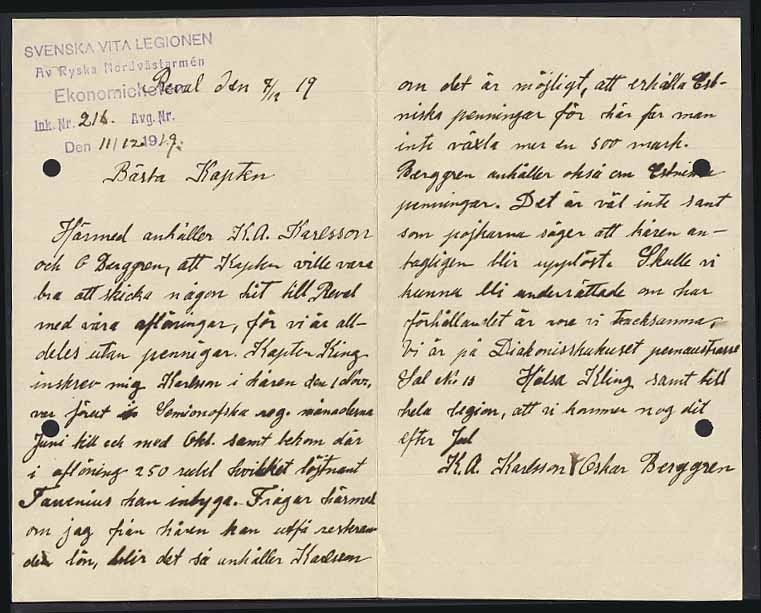 SVENSKA VITA LEGIONEN
Av Ryska Nordvästarmén
Ekonomichefen
Ink. Nr. 216. Avg. Nr.
Den 11/12 1919.
Reval den 8/12 19
Bästa Kapten
Härmed anhåller K.A. Karlsson
och O Berggren, att Kapten ville vara
bra att skicka någon hit till Reval
med våra aflöningar, för vi är all-
deles utan penningar. Kapten King
inskrev mig Karlsson i hären den 1 Nov.
var förut in Semionofska reg. månaderna
Juni till och med Okt. samt bekom där
i aflöning 250 rubel hvilket löjtnant
kan intyga. Frågar härmed
om jag från hären kan utfå
den lön, blir det så anhåller Karlsson
om det är möjligt, att erhålla Est-
niska penningar för här får man
inte växla mer en 500 mark.
Berggren anhåller också om Estniska
penningar. Det är väl inte sant
som pojkarna säger att hären an-
tagligen blir upplöst. Skulle vi
kunna bli underrättade om hur
förhållandet är vore vi tacksamma,
Vi är på Diakonisshuset pernaustrasse
Sal No 13 Hälsa Kling samt till
hela legion, att vi kommer nog dit
efter Jul
K.A. Karlsson Oskar Berggren